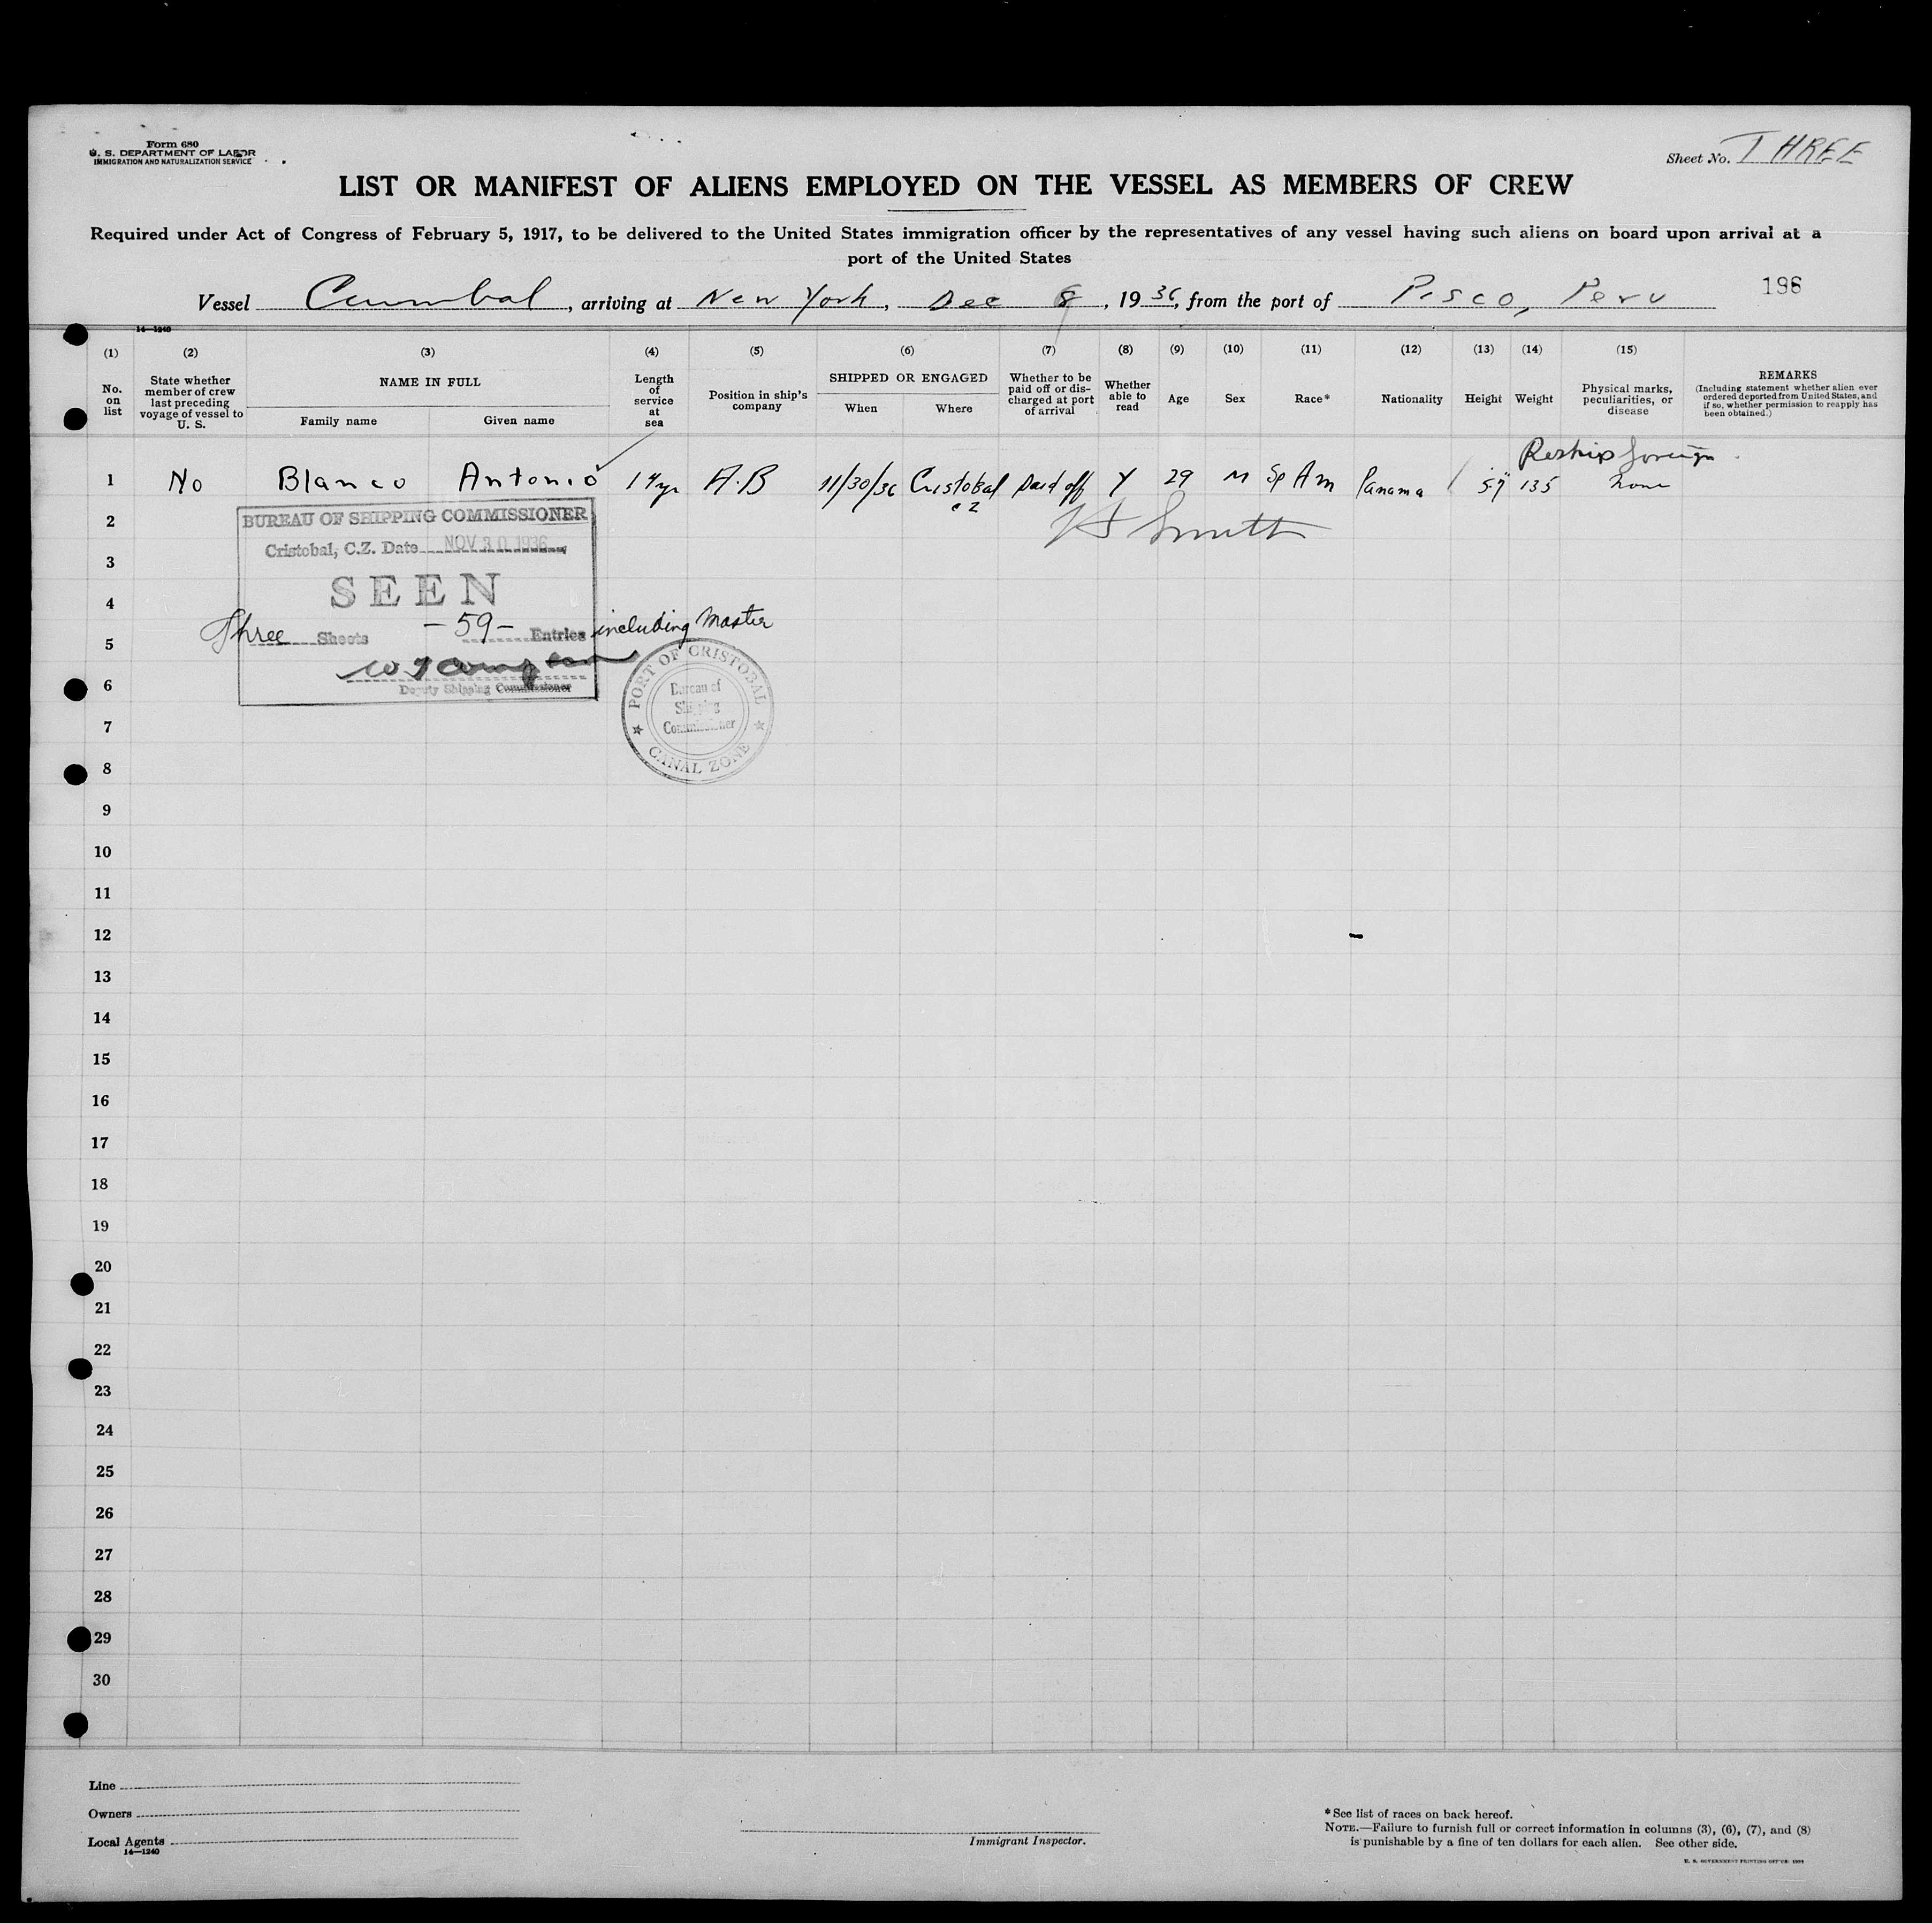 Form 680
U. S. DEPARTMENT OF LABOR
IMMIGRATION AND NATURALIZATION SERVICE
Sheet No. THREE
LIST OR MANIFEST OF ALIENS EMPLOYED ON THE VESSEL AS MEMBERS OF CREW
Required under Act of Congress of February 5, 1917, to be delivered to the United States immigration officer by the representatives of any vessel having such aliens on board upon arrival at a
port of the United States
Vessel , arriving at New York, Dec 8, 1936, from the port of Pisco, Peru
196
14—1240
(1) (2) (3) (4) (5) (6) (7) (8) (9) (10) (11) (12) (13) (14) (15)
No. on list
State whether member of crew last preceding voyage of vessel to U. S.
NAME IN FULL
Family name
Given name
Length of service at sea
Position in ship's company
SHIPPED OR ENGAGED
When
Where
Whether to be paid off or discharged at port of arrival
Whether able to read
Age
Sex
Race*
Nationality
Height
Weight
Physical marks, peculiarities, or disease
REMARKS
(Including statement whether alien ever ordered deported from United States, and if so, whether permission to reapply has been obtained.)
Reship foreign
1 No Blanco Antonio 14 yr A.B 11/30/36 Cristobal Paid off Y 29 M Sp Am Panama 5'7" 135 None
CZ
Smith
2
BUREAU OF SHIPPING COMMISSIONER
Cristobal, C.Z. Date NOV 30 1936
3
SEEN
4
Three Sheets -59- Entries including Master
5
Deputy Shipping Commissioner
6
PORT OF CRISTOBAL
Bureau of
Shipping
Commissioner
CANAL ZONE
7
8
9
10
11
12
13
14
15
16
17
18
19
20
21
22
23
24
25
26
27
28
29
30
Line
Owners
Local Agents
14—1240
Immigrant Inspector.
*See list of races on back hereof.
NOTE.—Failure to furnish full or correct information in columns (3), (6), (7), and (8)
is punishable by a fine of ten dollars for each alien. See other side.